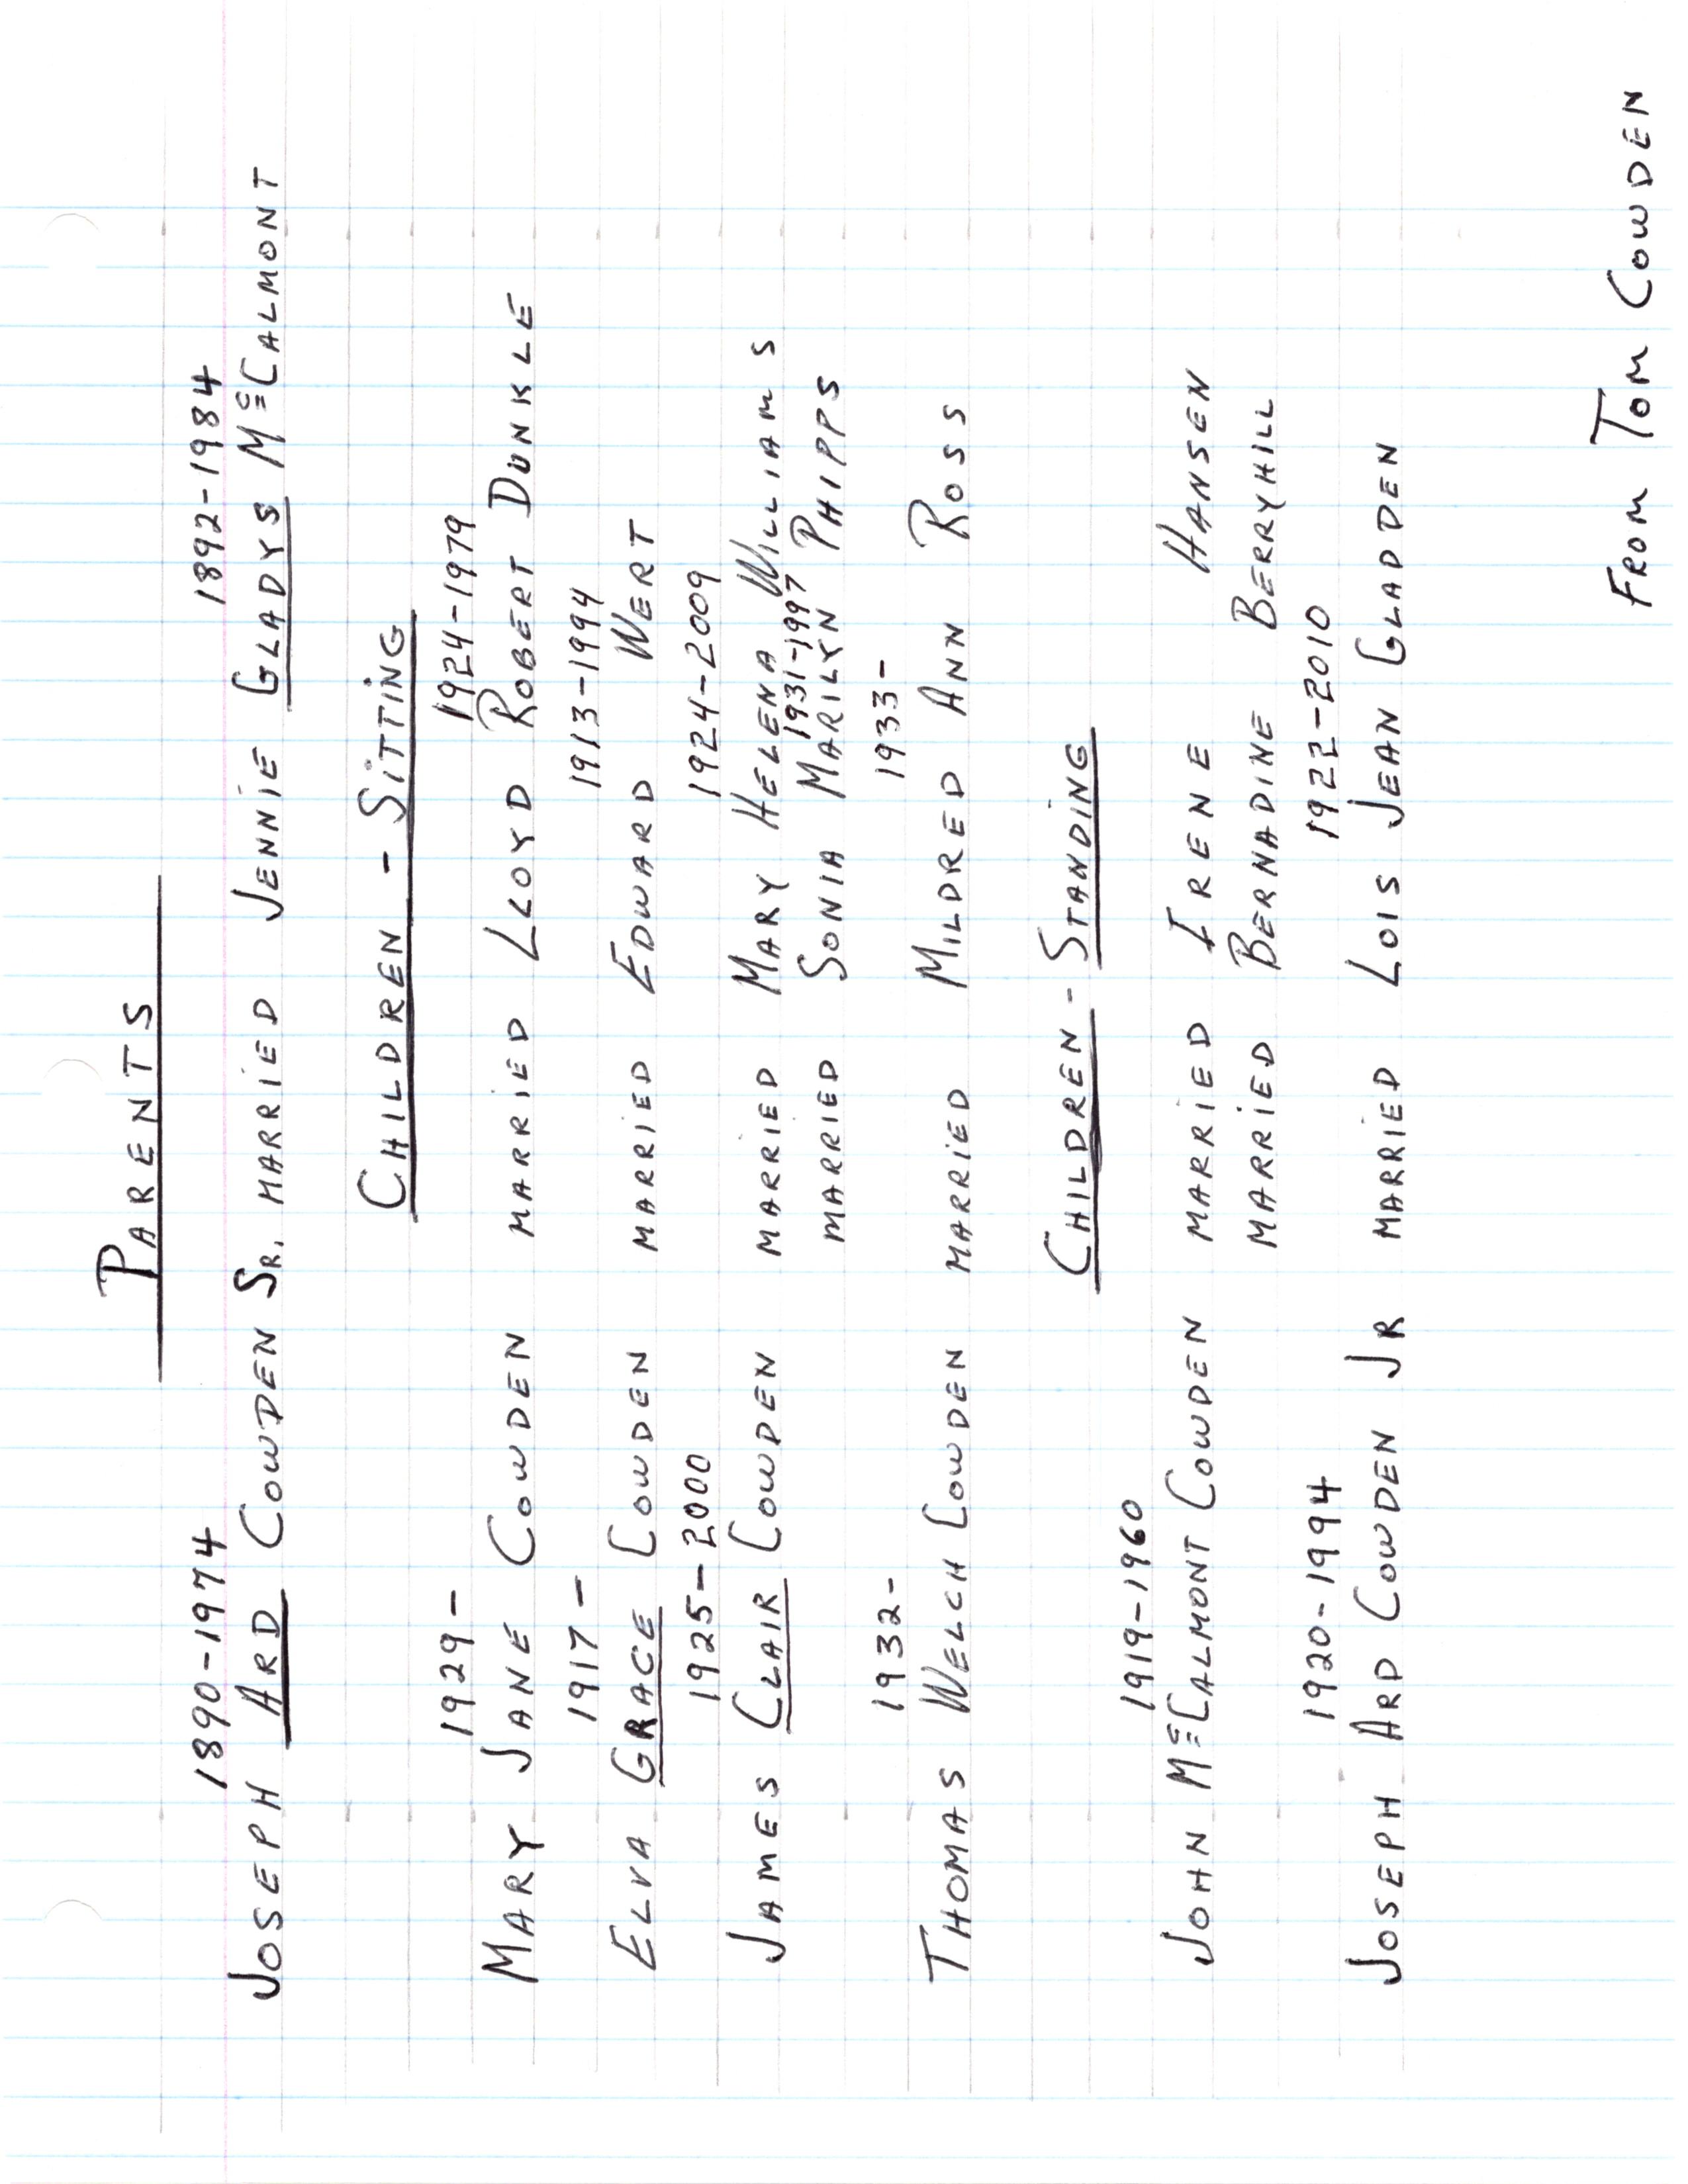 PARENTS
1890-1974 1892-1984
JOSEPH ARD COWDEN SR. MARRIED JENNIE GLADYS McCALMONT
CHILDREN - SITTING
1929- 1924-1979
MARY JANE COWDEN MARRIED LLOYD ROBERT DUNKLE
1917- 1913-1994
ELVA GRACE COWDEN MARRIED EDWARD WERT
1925-2000 1924-2009
JAMES CLAIR COWDEN MARRIED MARY HELENA WILLIAMS
1931-1997
MARRIED SONIA MARILYN PHIPPS
1932- 1933-
THOMAS WELCH COWDEN MARRIED MILDRED ANN ROSS
CHILDREN - STANDING
1919-1960
JOHN McCALMONT COWDEN MARRIED IRENE HANSEN
MARRIED BERNADINE BERRYHILL
1920-1994 1922-2010
JOSEPH ARD COWDEN JR MARRIED LOIS JEAN GLADDEN
FROM TOM COWDEN